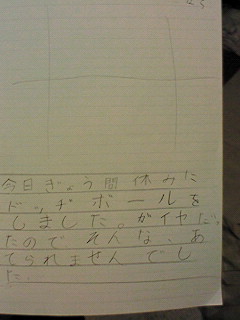 今日ぎょう間休みに
ドッチボールを
しました。がイヤだっ
たのでそんな、あ
てられませんでし
た.